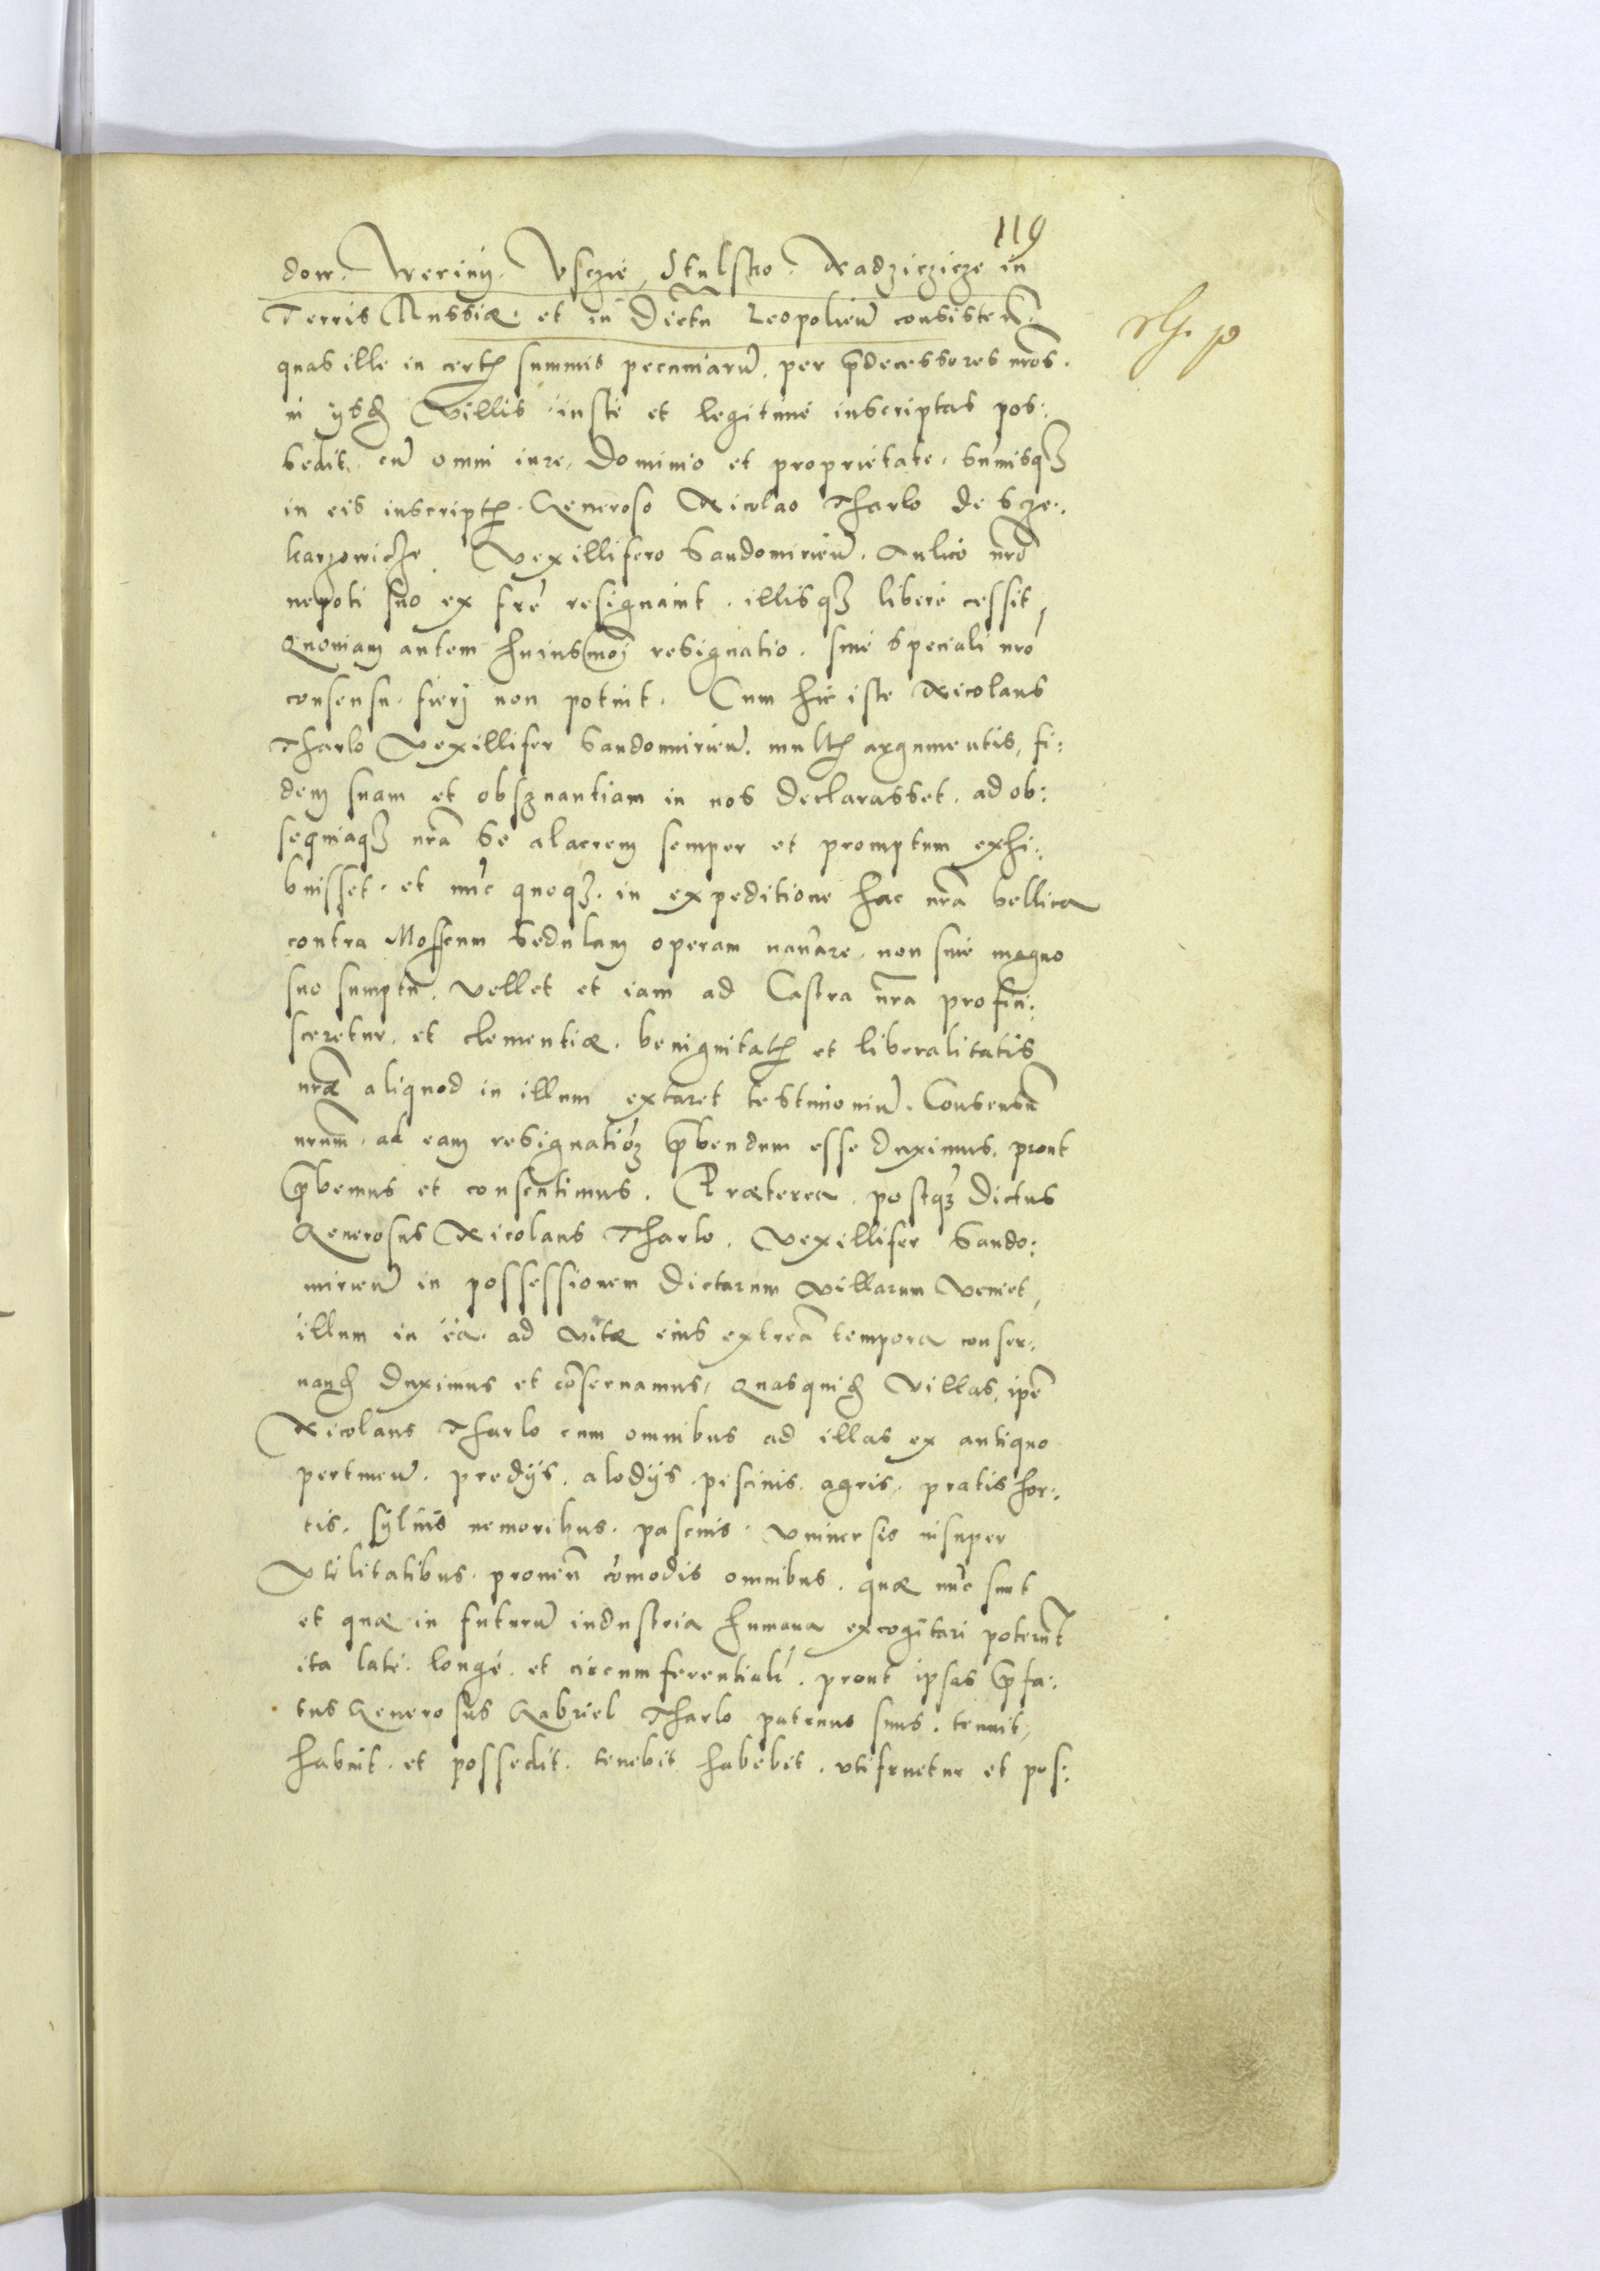 119
dow. Weriny. Vsczie, Stulsko. Radziczicze in
Terris Russiæ. et in Dictu Leopolien̄ consisten̄.
quas ille in certis summis pecuniarū. per p̄decessores nr̄os.
in ysdē Villis iuste et legitime inscriptas pos:
sedit, cū omni iure, Dominio et proprietate, sum̄isqȝ
in eis inscriptis. Generoso Nicolao Tharlo de Scze:
karzowicze. Vexillifero Sandomirien̄. Aulico nr̄o
nepoti suo ex frē resignauit. illisqȝ libere cessit,
Quoniam autem huiusmoi resignatio. sine speciali nr̄o
consensu. fierj non potuit. Cum hic iste Nicolaus
Tharlo Vexillifer Sandomirien̄. multis argumentis, fi:
dem suam et obseruantiam in nos declarasset. ad ob:
sequiaqȝ nr̄a se alacrem semper et promptum exhi:
buisset. et nūc quoqȝ. in expeditione hac nr̄a bellica
contra Moscum sedulam operam nauare. non sine magno
suo sumptu. vellet et iam ad Castra nr̄a profici:
sceretur. et clementiæ. benignitatis et liberalitatis
nr̄æ aliquod in illum extaret testimoniū. Consensū
nrum. ad eam resignatioȝ p̄bendum esse duximus. prout
p̄bemus et consentimus. Præterea. postqȝ dictus
Generosus Nicolaus Tharlo. Vexillifer Sando:
mirien̄ in possessionem dictarum villarum veniet,
illum in ea. ad vitæ eius extrēa tempora conser:
uandū duximus et cōseruamus, Quasquidē Villas, ipē
Nicolaus Tharlo cum omnibus ad illas ex antiquo
pertinen̄. predijs. alodijs. piscinis. agris. pratis hor:
tis. syluis nemoribus. pascuis. Vniuersis insuper
Vtilitatibus. prouen̄ cōmodis omnibus. quæ nūc sunt
et quæ in futurū industria humana excogitari poterūt
ita late. longe. et circumferentialr̄. prout ipsas p̄fa:
tus Generosus Gabriel Tharlo patruus suus. tenuit,
habuit. et possedit. tenebit habebit. vtifruetur et pos: